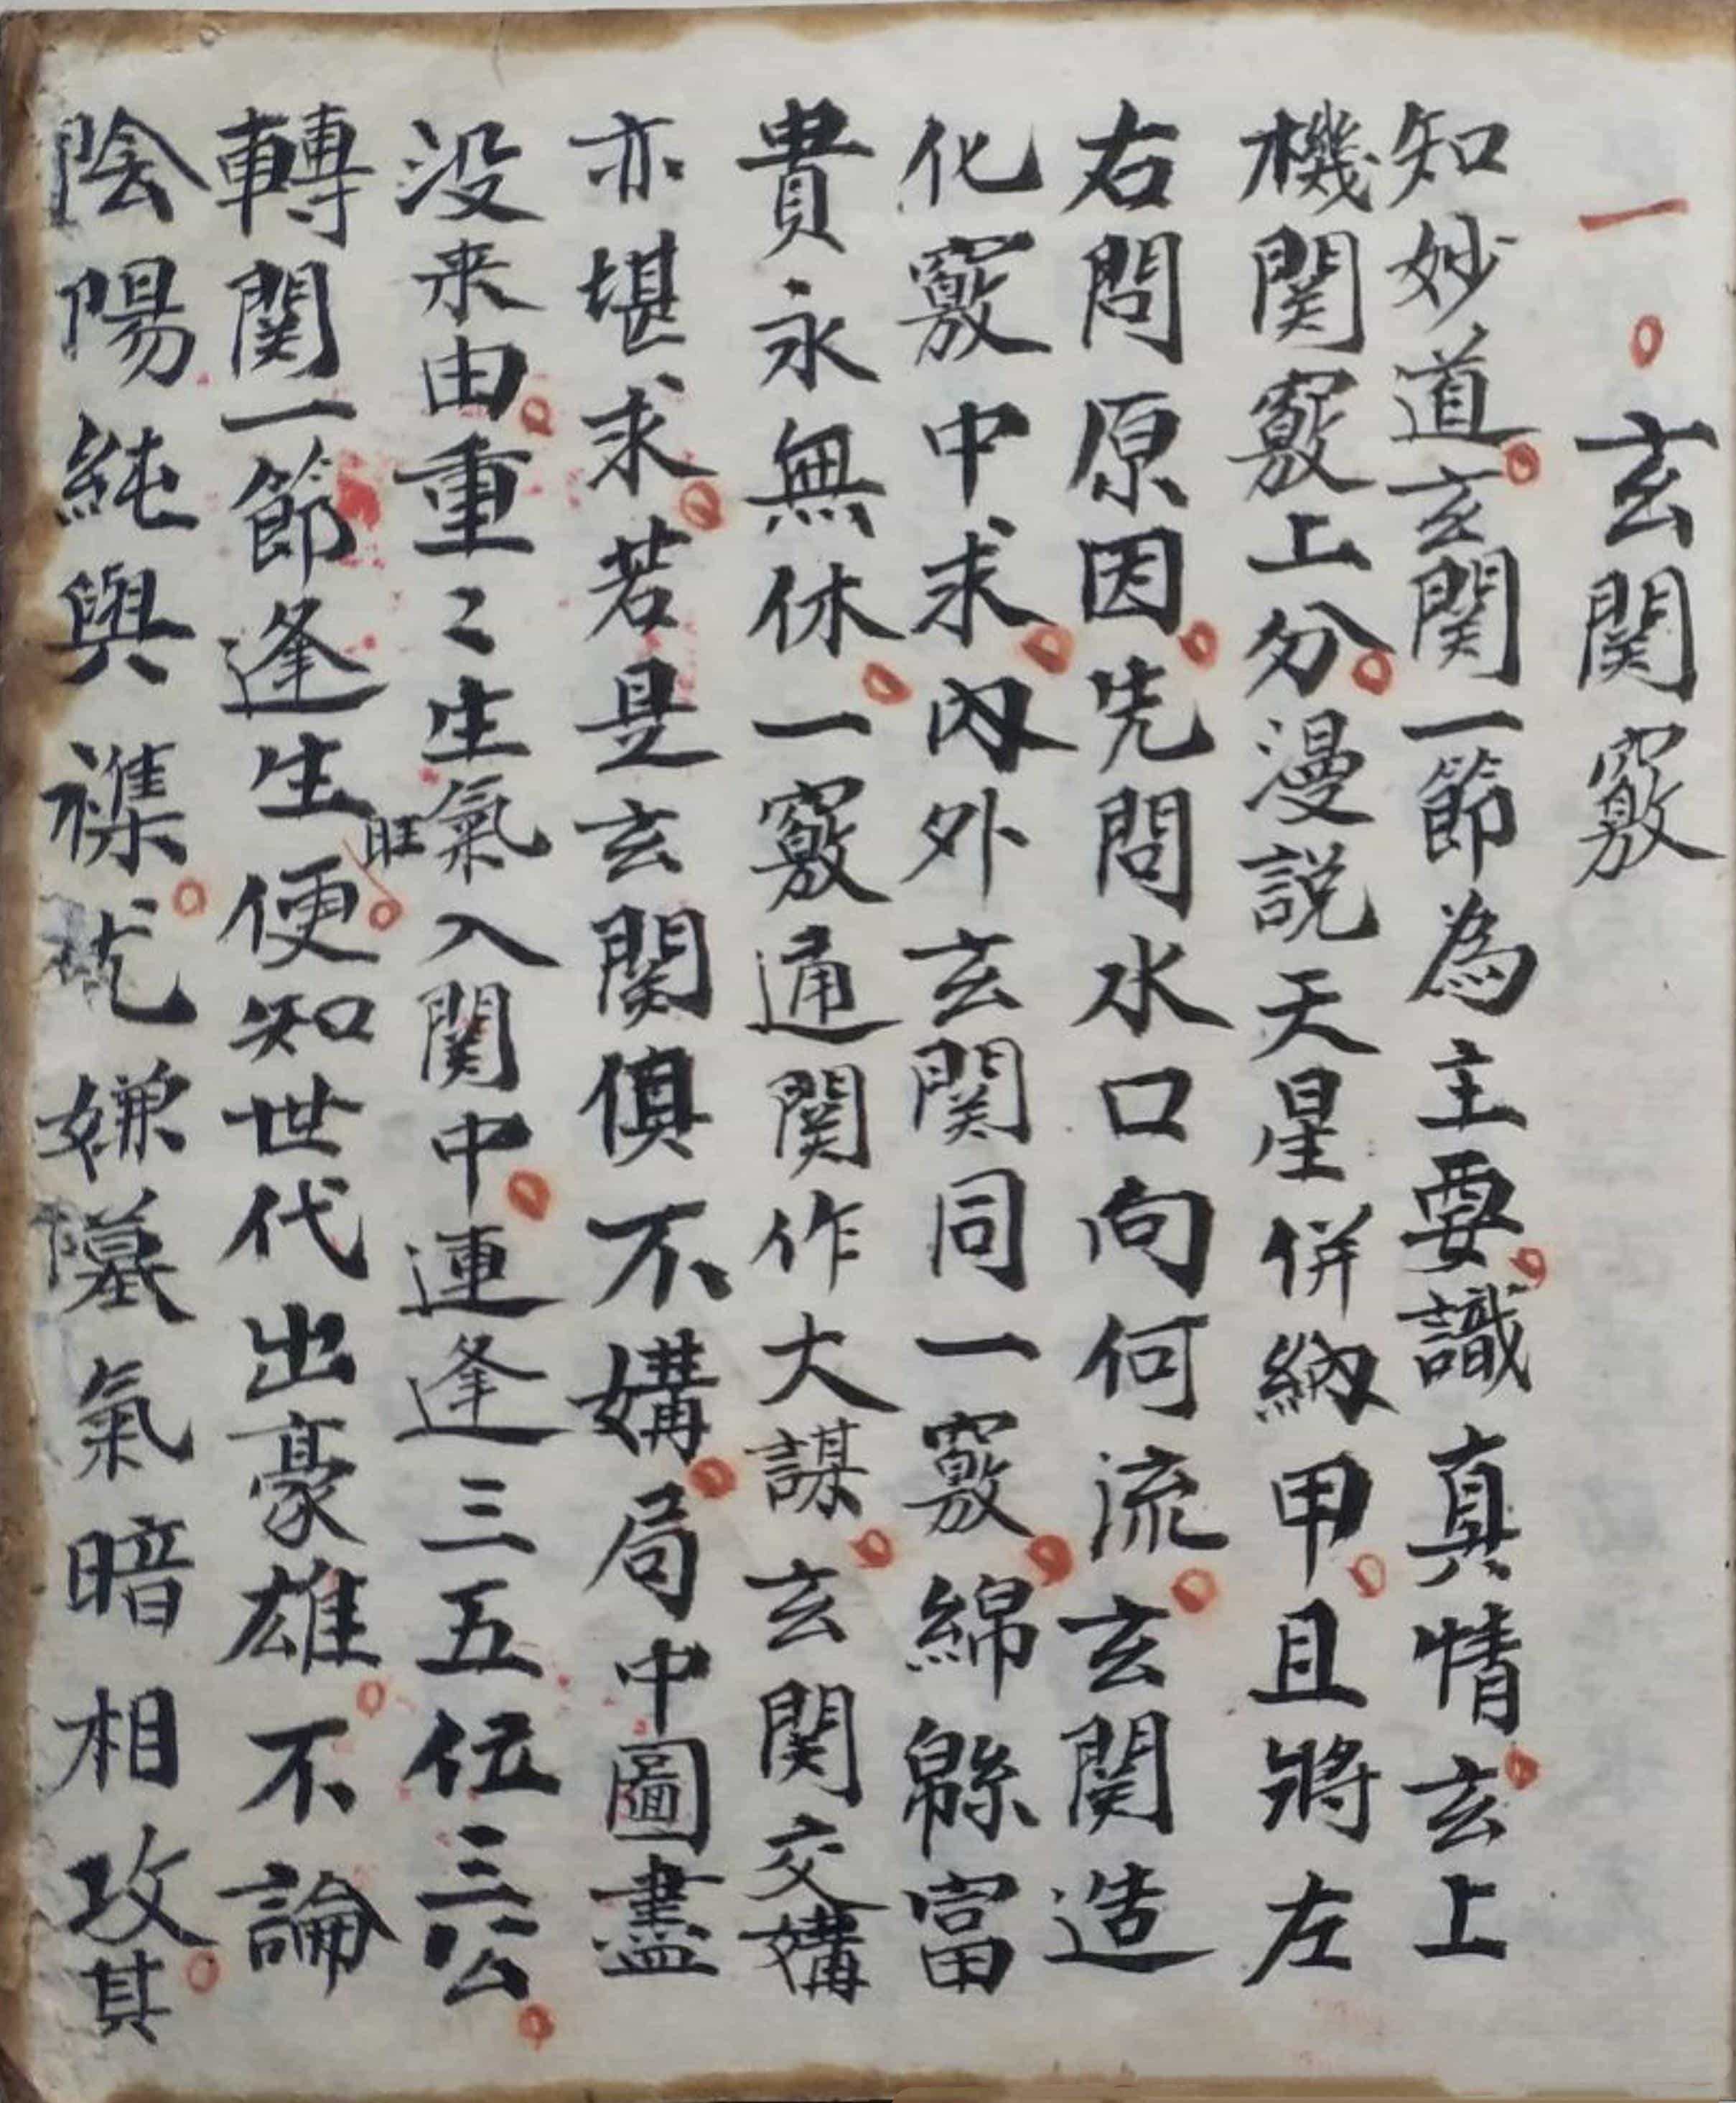 一 玄関竅
知妙道玄関一節為主要識真情玄上
機関竅上分漫説天星併納甲且將左
右問原因先問水口向何流玄関造
化竅中求內外玄関同一竅綿緜富
貴永無休一竅通関作大謀玄関交媾
亦堪求若是玄関俱不媾局中圖盡
没来由重〻生氣入関中連逢三五位三公
旺
轉関一節逢生便知世代出豪雄不論
陰陽純與襍尤嫌墓氣暗相攻其